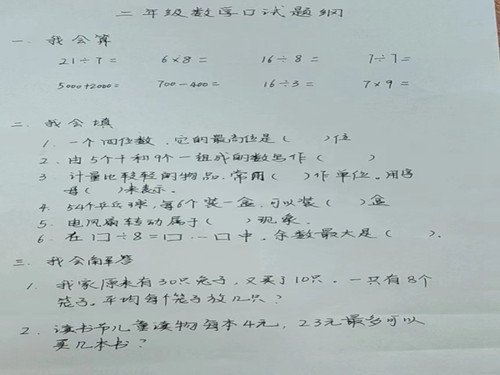 二年级数学口试题纲
一.我会算
21÷7= 6×8= 16÷8= 7÷7=
5000+2000= 700-400= 16÷3= 7×9=
二.我会填
1.一个四位数,它的最高位是( )位
2.由5个千和9个一组成的数写作( )
3.计量比较轻的物品,常用( )作单位。用字
母( )来表示。
4.54个乒乓球,每6个装一盒,可以装( )盒
5.电风扇转动属于( )现象.
6.在口÷8=口…口中,余数最大是( ).
三.我会解答
1.我家原来有30只兔子,又买了10只。一共有8个
笼子。平均每个笼子放几只?
2.读书节儿童读物每本4元,23元最多可以
买几本书?